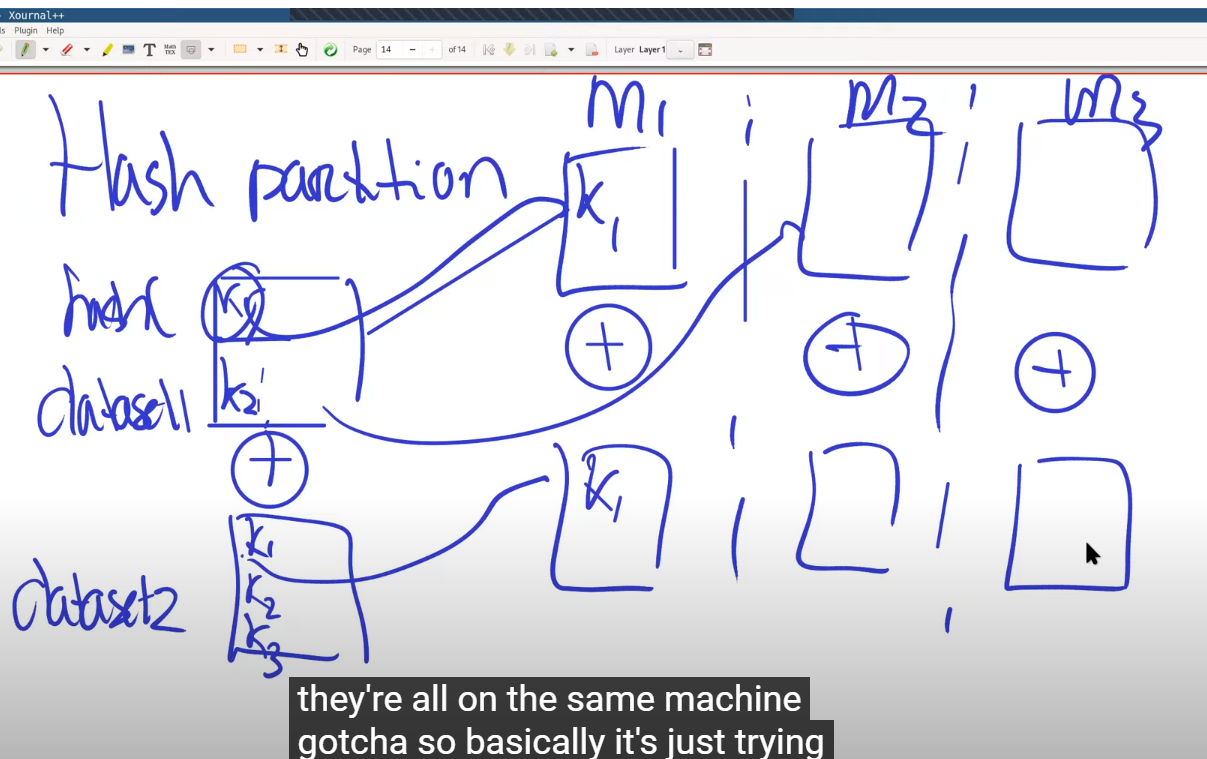 Xournal++
ls Plugin Help
T Math TEX Page 14 - + of 14 Layer Layer 1
M1 M2 M3
Hash partition
k1
hash k1
dataset1 k2
k1
k1
k2
dataset2 k3
they're all on the same machine
gotcha so basically it's just trying